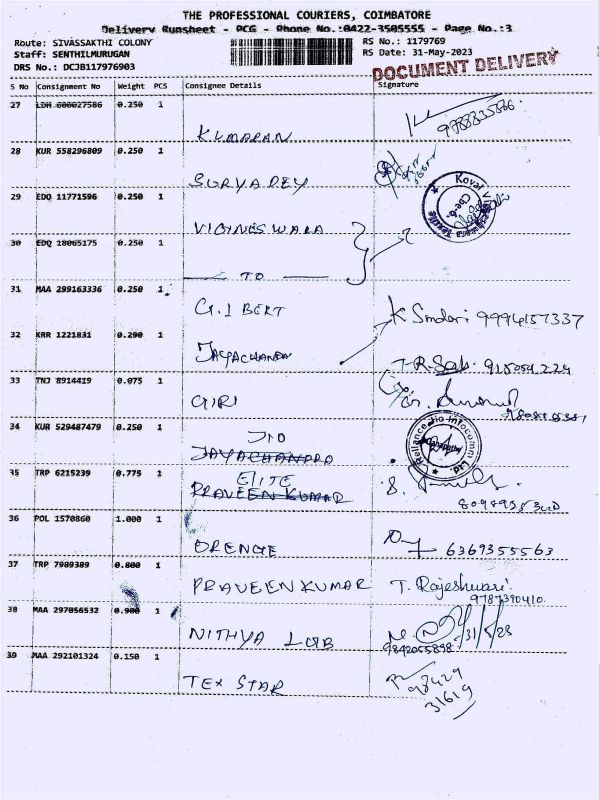 THE PROFESSIONAL COURIERS, COIMBATORE
Delivery Runsheet - PCG - Phone No.:0422-3505555 - Page No.:3
Route: SIVASSAKTHI COLONY
RS No.: 1179769
Staff: SENTHILMURUGAN
RS Date: 31-May-2023
DRS No.: DCJB117976903
DOCUMENT DELIVERY
S No Consignment No Weight PCS Consignee Details Signature
27 LDH 600027586 0.250 1
KUMARAN
28 KUR 558296809 0.250 1
SURYADEV
29 EDQ 11771596 0.250 1
VIGINESWARA
30 EDQ 18065175 0.250 1
TO
31 MAA 299163336 0.250 1
G.IBERT
K Sundari 9994157337
32 KRR 1221831 0.290 1
JAYACHANDA
33 TNJ 8914419 0.075 1
GIRI
34 KUR 529487479 0.250 1
JIO
JAYACHANDRA
Reliance Jio Infocomm Ltd
35 TRP 6215239 0.775 1
ELITE
PRAVEEN KUMAR
36 POL 1570860 1.000 1
ORENGE
6369355563
37 TRP 7989389 0.800 1
PRAVEENKUMAR
T. Rajeshwari
9787390410
38 MAA 297056532 0.900 1
NITHYA LAB
31/5/23
9842055898
39 MAA 292101324 0.150 1
TEX STAR
98429
31619